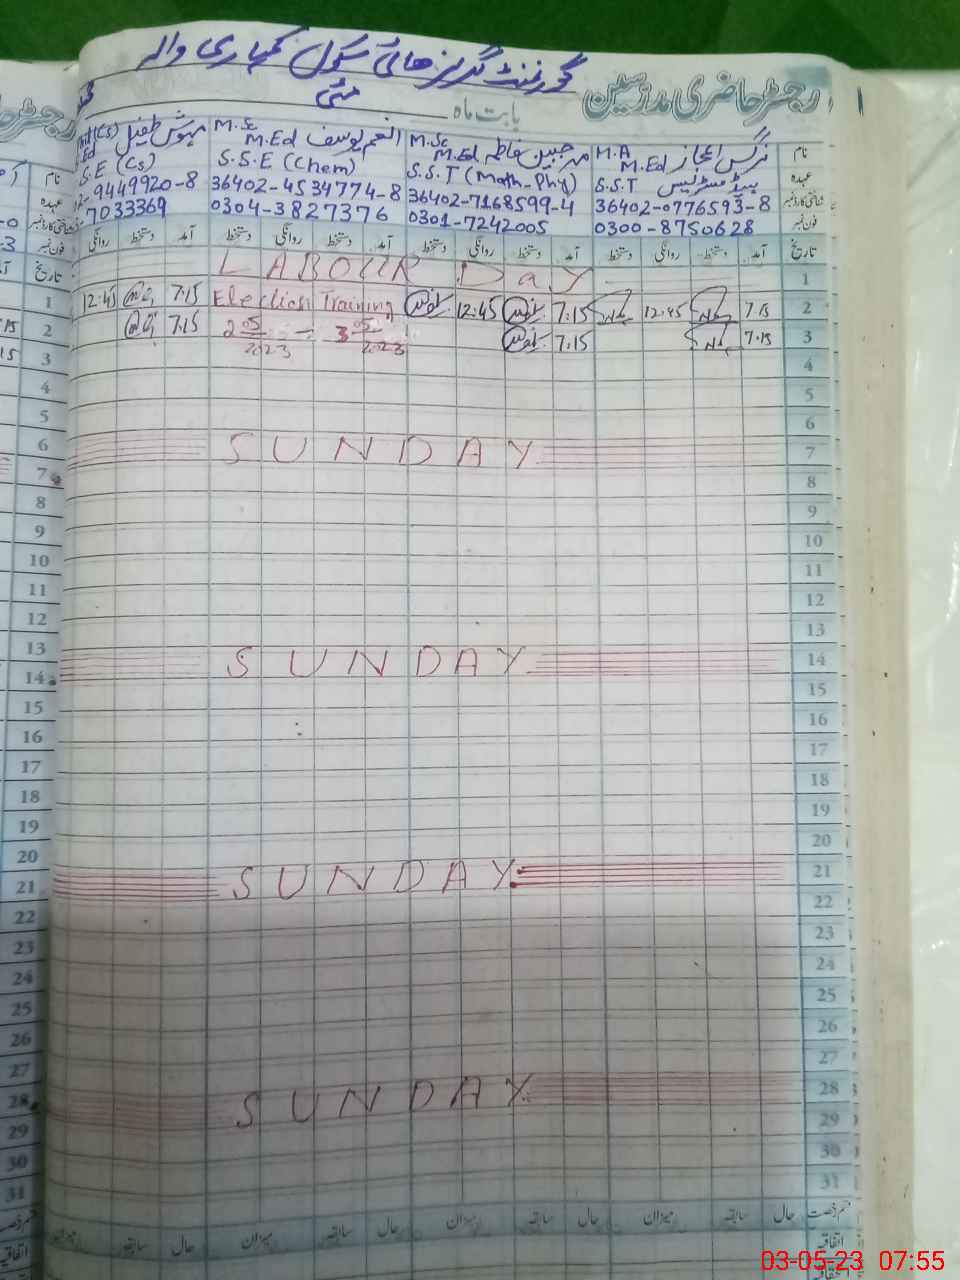 گورنمنٹ گرلز ہائی سکول کمہاری والہ
رجسٹر حاضری مدرسین
بابت ماہ مئی
نام
نرگس اعجاز M.A M.Ed
مہ جبین فاطمہ M.Sc M.Ed
انعم یوسف M.Sc M.Ed
مہوش طفیل (CS)
عہدہ
S.S.T ہیڈ مسٹریس
S.S.T (Math-Phy)
S.S.E (Chem)
S.E (CS)
شناختی کارڈ نمبر
36402-0776593-8
36402-7168599-4
36402-4534774-8
9449920-8
فون نمبر
0300-8750628
0301-7242005
0304-3827376
7033369
تاریخ آمد دستخط روانگی دستخط آمد دستخط روانگی دستخط آمد دستخط روانگی دستخط آمد دستخط روانگی
1 LABOUR Day
2 7.15 12.45 7.15 12:45 Election Training 7.15 12:45
3 7.15 7.15 2 05 2023 - 3 05 2023 7.15
4
5
6
7 SUNDAY
8
9
10
11
12
13
14 SUNDAY
15
16
17
18
19
20
21 SUNDAY
22
23
24
25
26
27
28 SUNDAY
29
30
31
حال سابقہ میزان حال سابقہ میزان حال سابقہ میزان حال سابقہ
اتفاقیہ
1
2
3
4
5
6
7
8
9
10
11
12
13
14
15
16
17
18
19
20
21
22
23
24
25
26
27
28
29
30
31
03-05-23 07:55